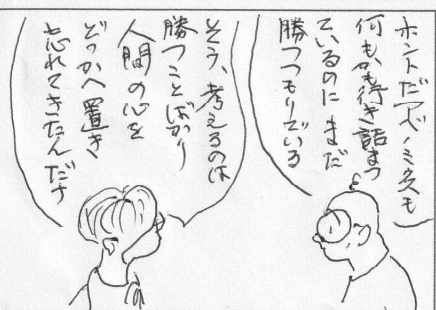 ホントだアベノミクスも
何もかも行き詰まっ
ているのにまだ
勝つつもりでいる
そう、考えるのは
勝つことばかり
人間の心を
どっかへ置き
忘れてきたんだナ